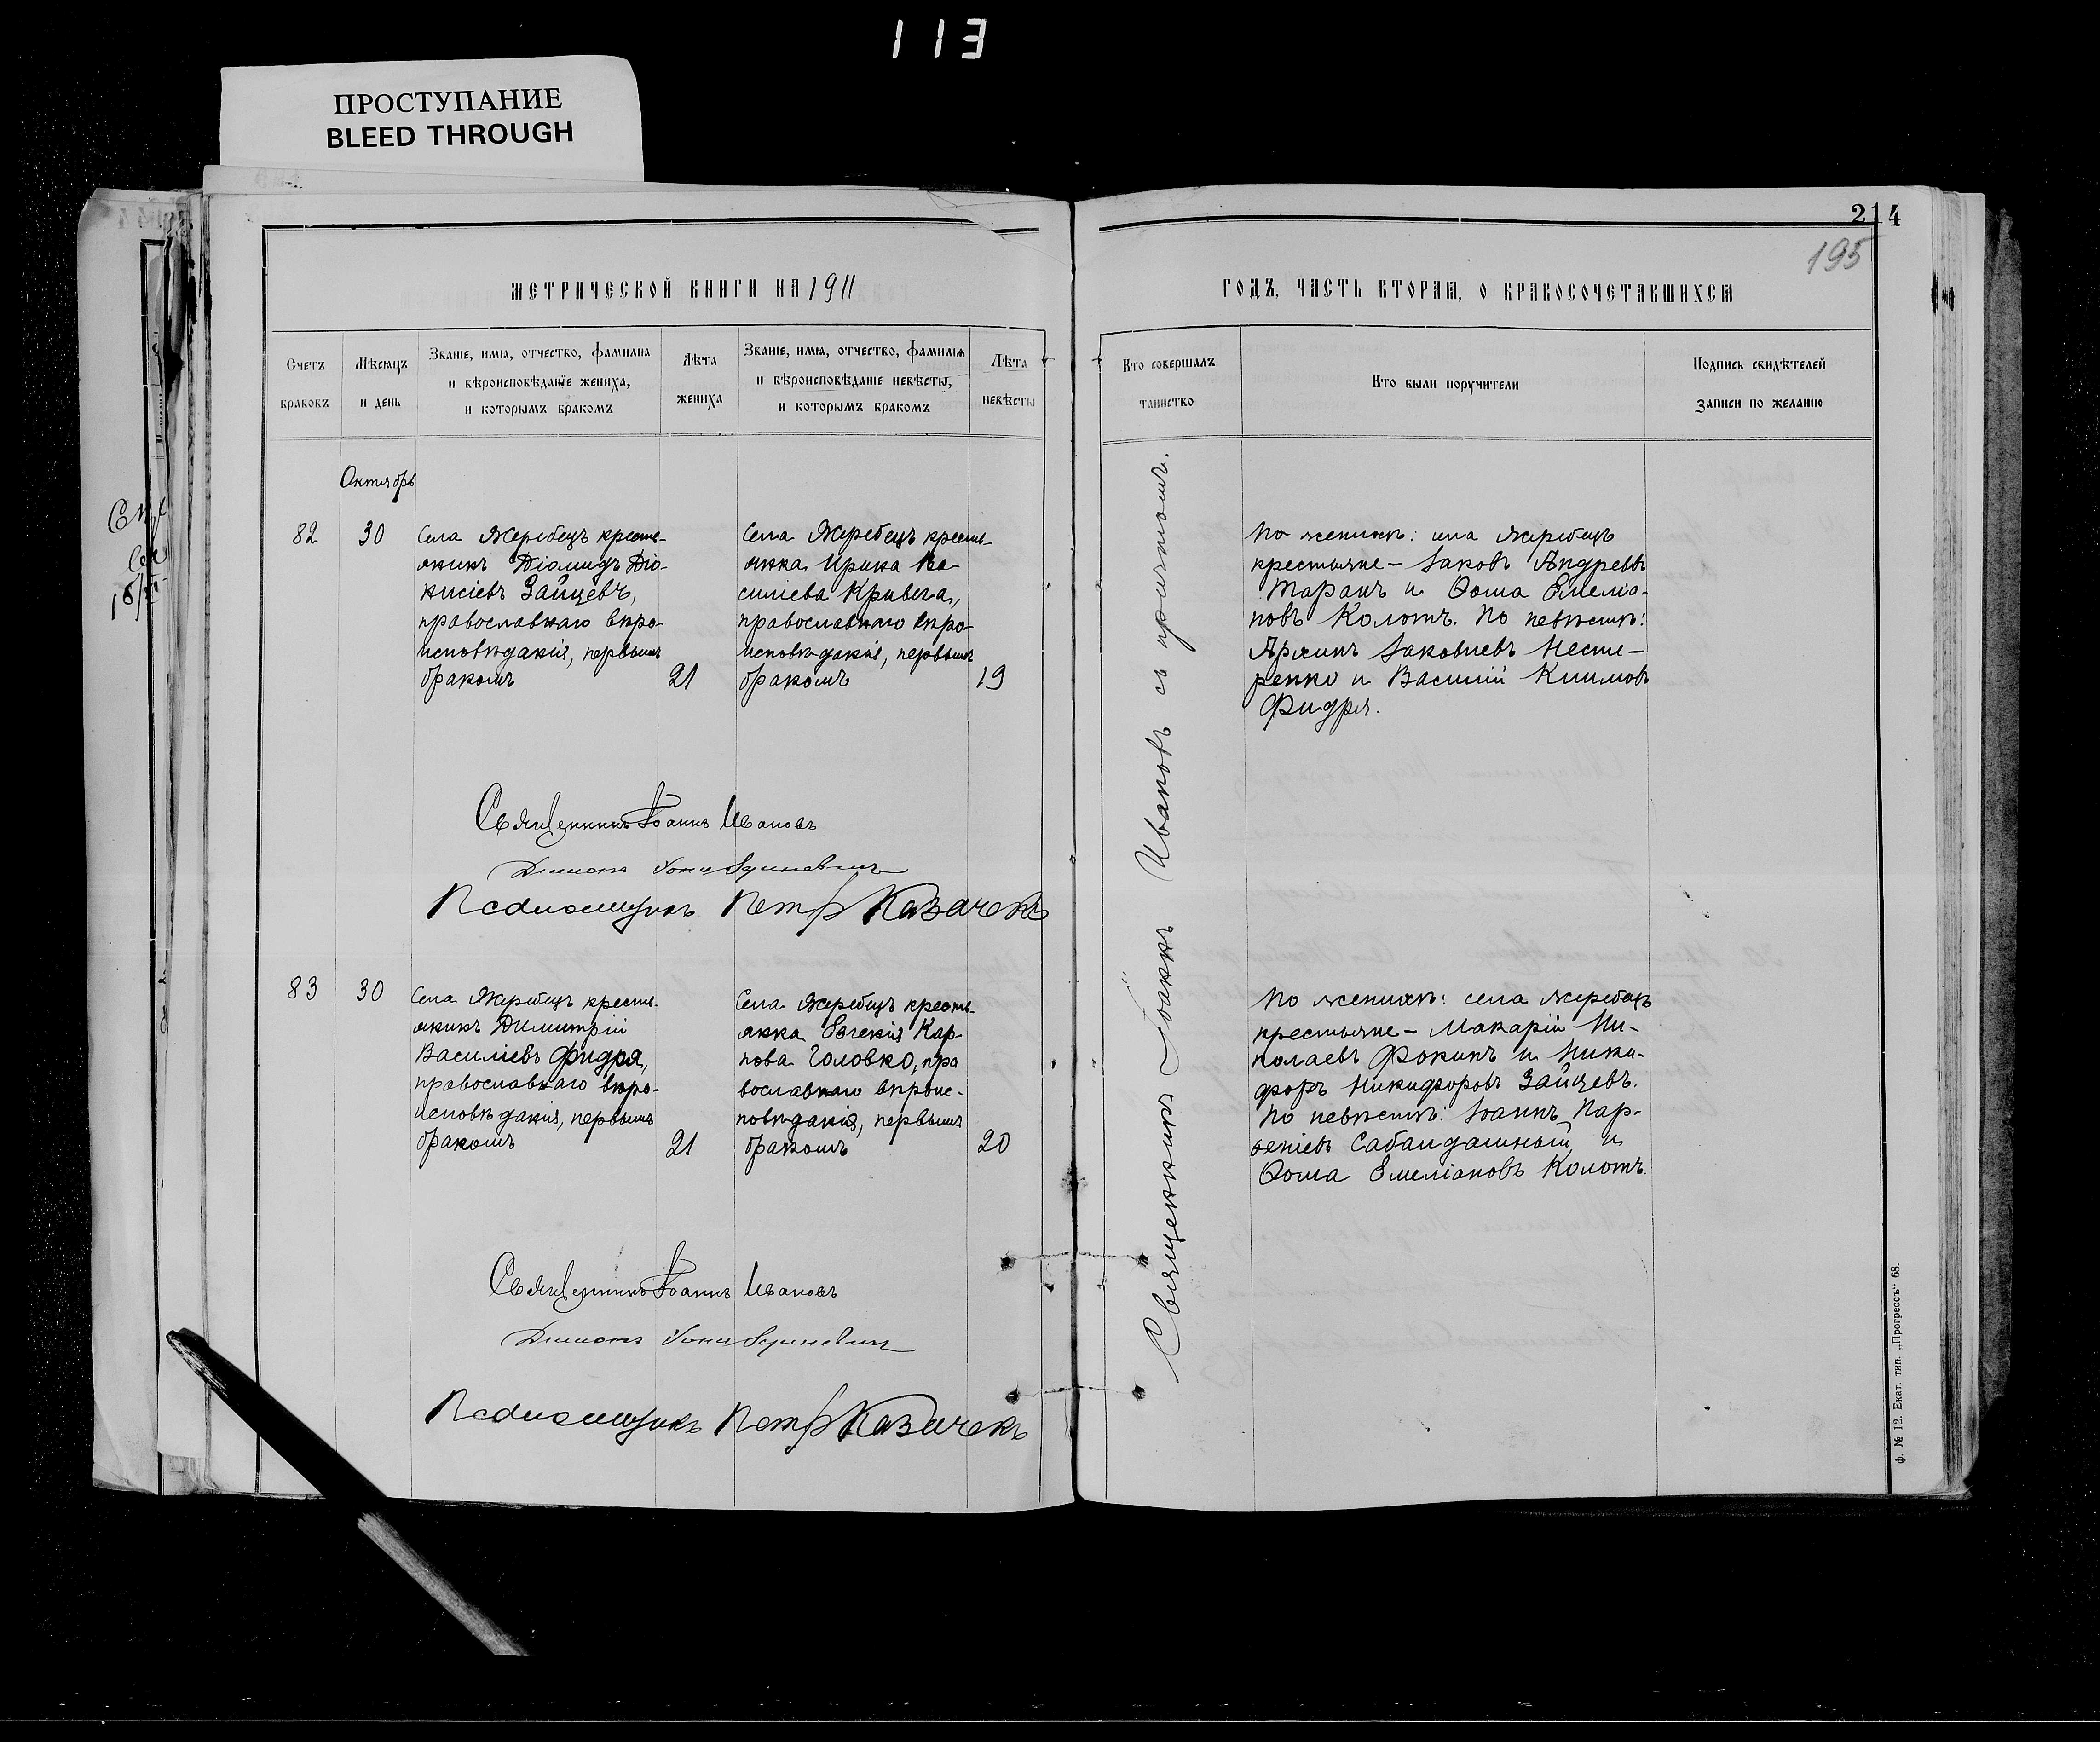 113
ПРОСТУПАНИЕ
BLEED THROUGH
214
195
МЕТРИЧЕСКОЙ КНИГИ НА 1911
ГОДЪ, ЧАСТЬ ВТОРАЯ, О БРАКОСОЧЕТАВШИХСЯ
Счетъ браковъ
Мѣсяцъ и день
Званіе, имя, отчество, фамилія
и вѣроисповѣданіе жениха,
и которымъ бракомъ
Лѣта жениха
Званіе, имя, отчество, фамилія
и вѣроисповѣданіе невѣсты,
и которымъ бракомъ
Лѣта невѣсты
Кто совершалъ таинство
Кто были поручители
Подпись свидѣтелей
записи по желанію
Октябрь
82
30
Села Жеребецъ кресть-
янинъ Діомидъ Діо-
нисіевъ Зайцевъ,
православнаго вѣро-
исповѣданія, первымъ
бракомъ
21
Села Жеребецъ кресть-
янка Ирина Ва-
силіева Кривега,
православнаго вѣро-
исповѣданія, первымъ
бракомъ
19
Священникъ Іоаннъ Ивановъ съ причтомъ.
По женихѣ: села Жеребецъ
крестьяне – Іаковъ Андреевъ
Таранъ и Ѳома Емелiа-
новъ Колотъ. По невѣстѣ:
Архипъ Іаковлевъ Несте-
ренко и Василій Климовъ
Фидря.
Священникъ Іоаннъ Ивановъ
Псаломщикъ Петръ Казачекъ
83
30
Села Жеребецъ кресть-
янинъ Димитрій
Василіевъ Фидря,
православнаго вѣро-
исповѣданія, первымъ
бракомъ
21
Села Жеребецъ кресть-
янка Евгенія Кар-
пова Головко, пра
вославнаго вѣроис-
повѣданія, первымъ
бракомъ
20
По женихѣ: села Жеребецъ
крестьяне – Макарій Ни-
колаевъ Фокинъ и Ники-
форъ Никифоровъ Зайцевъ.
По невѣстѣ: Іоаннъ Пар-
ѳеніевъ Сабандашный и
Ѳома Емеліановъ Колотъ.
Священникъ Іоаннъ Ивановъ
Псаломщикъ Петръ Казачекъ
Ф. № 12. Екат. тип. „Прогрессъ“ 68.